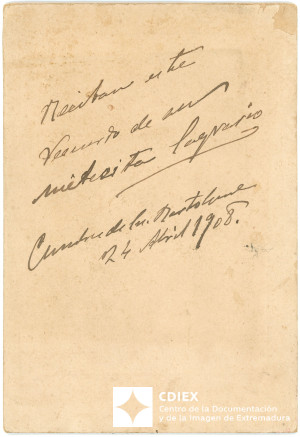 Reciban este
recuerdo de su
nietecita Sagrario
Cumbre de Sn. Bartolomé
24 Abril 1908.
CDIEX
Centro de la Documentación
y de la Imagen de Extremadura